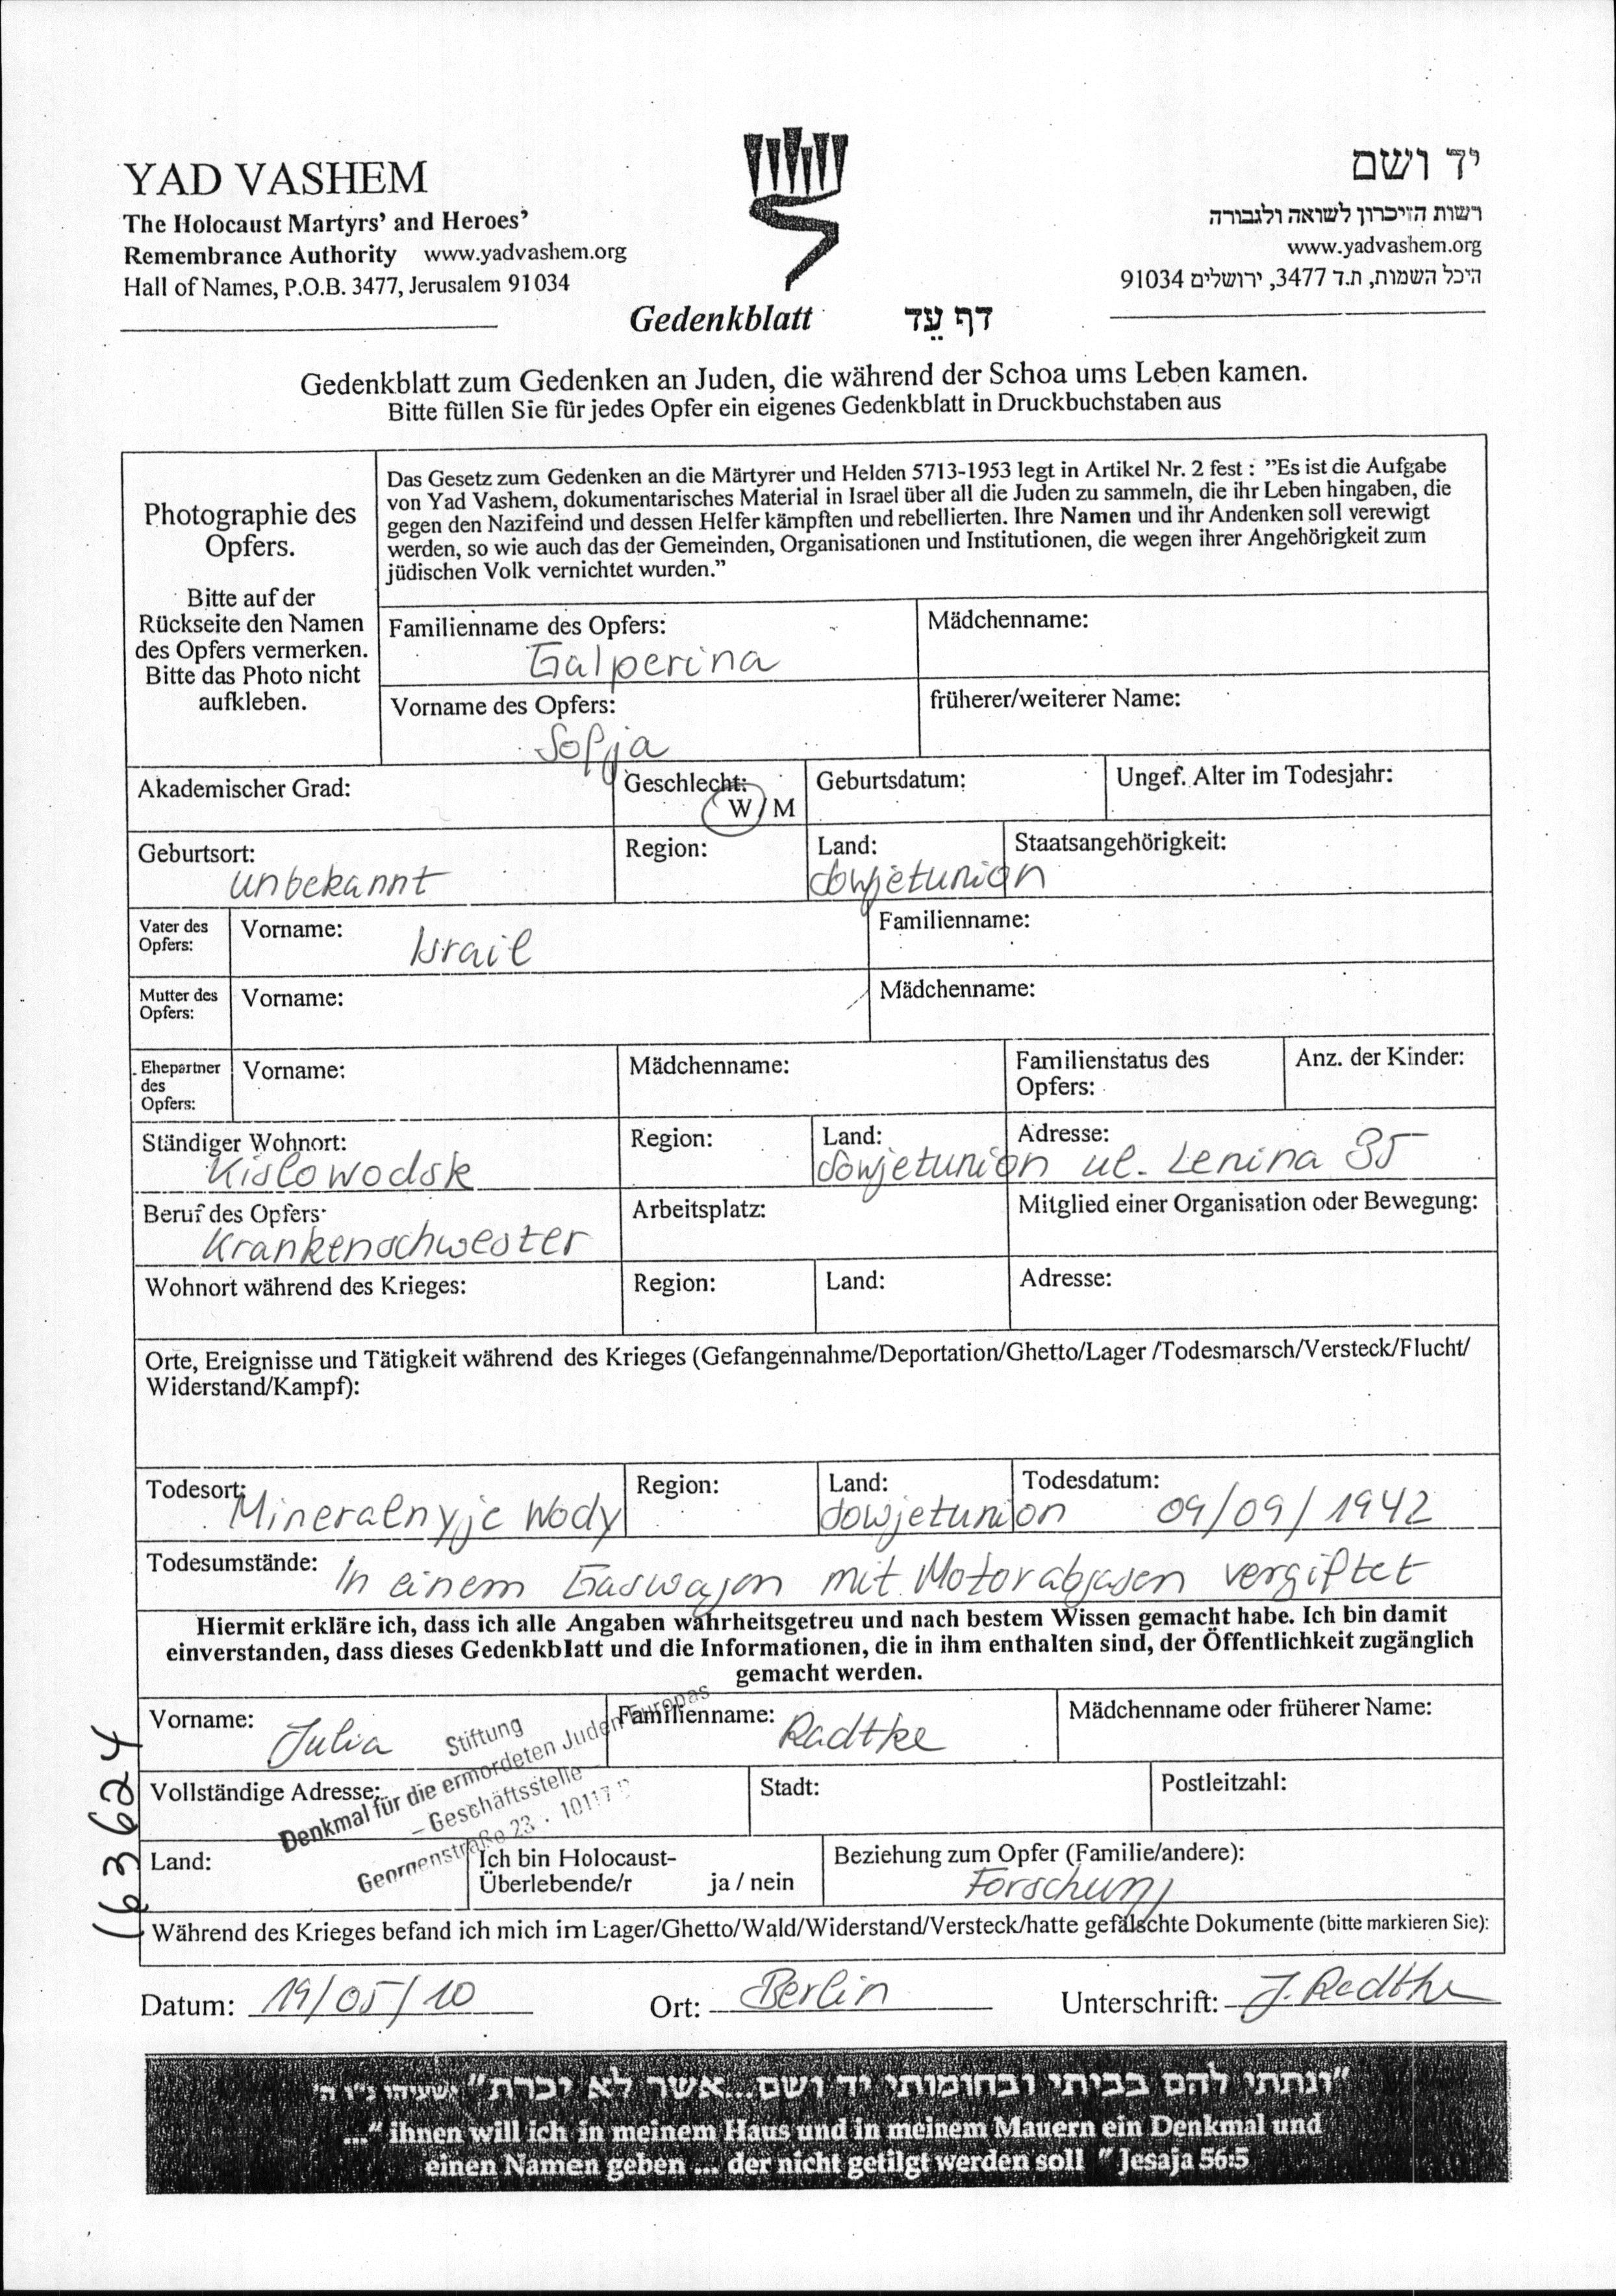 YAD VASHEM
The Holocaust Martyrs' and Heroes'
Remembrance Authority www.yadvashem.org
Hall of Names, P.O.B. 3477, Jerusalem 91034
יד ושם
רשות הזיכרון לשואה ולגבורה
www.yadvashem.org
היכל השמות, ת.ד 3477, ירושלים 91034
Gedenkblatt דף עֵד
Gedenkblatt zum Gedenken an Juden, die während der Schoa ums Leben kamen.
Bitte füllen Sie für jedes Opfer ein eigenes Gedenkblatt in Druckbuchstaben aus
Photographie des
Opfers.
Bitte auf der
Rückseite den Namen
des Opfers vermerken.
Bitte das Photo nicht
aufkleben.
Das Gesetz zum Gedenken an die Märtyrer und Helden 5713-1953 legt in Artikel Nr. 2 fest : "Es ist die Aufgabe
von Yad Vashem, dokumentarisches Material in Israel über all die Juden zu sammeln, die ihr Leben hingaben, die
gegen den Nazifeind und dessen Helfer kämpften und rebellierten. Ihre Namen und ihr Andenken soll verewigt
werden, so wie auch das der Gemeinden, Organisationen und Institutionen, die wegen ihrer Angehörigkeit zum
jüdischen Volk vernichtet wurden."
Familienname des Opfers: Mädchenname:
Galperina
Vorname des Opfers: früherer/weiterer Name:
Sofja
Akademischer Grad: Geschlecht: Geburtsdatum: Ungef. Alter im Todesjahr:
W / M
Geburtsort: Region: Land: Staatsangehörigkeit:
unbekannt Sowjetunion
Vater des
Opfers:
Vorname: Israil Familienname:
Mutter des
Opfers:
Vorname: Mädchenname:
Ehepartner
des
Opfers:
Vorname: Mädchenname: Familienstatus des
Opfers:
Anz. der Kinder:
Ständiger Wohnort: Region: Land: Adresse:
Kislowodsk Sowjetunion ul. Lenina 35
Beruf des Opfers: Arbeitsplatz: Mitglied einer Organisation oder Bewegung:
Krankenschwester
Wohnort während des Krieges: Region: Land: Adresse:
Orte, Ereignisse und Tätigkeit während des Krieges (Gefangennahme/Deportation/Ghetto/Lager /Todesmarsch/Versteck/Flucht/
Widerstand/Kampf):
Todesort: Region: Land: Todesdatum:
Mineralnyje Wody Sowjetunion 09/09/1942
Todesumstände: In einem Gaswagen mit Motorabgasen vergiftet
Hiermit erkläre ich, dass ich alle Angaben wahrheitsgetreu und nach bestem Wissen gemacht habe. Ich bin damit
einverstanden, dass dieses Gedenkblatt und die Informationen, die in ihm enthalten sind, der Öffentlichkeit zugänglich
gemacht werden.
Vorname: Julia Familienname: Radtke Mädchenname oder früherer Name:
Stiftung
Denkmal für die ermordeten Juden Europas
– Geschäftsstelle –
Georgenstraße 23 · 10117
Vollständige Adresse: Stadt: Postleitzahl:
Land: Ich bin Holocaust-
Überlebende/r ja / nein
Beziehung zum Opfer (Familie/andere):
Forschung
Während des Krieges befand ich mich im Lager/Ghetto/Wald/Widerstand/Versteck/hatte gefälschte Dokumente (bitte markieren Sie):
163624
Datum: 19/05/10 Ort: Berlin Unterschrift: J. Radtke
"ונתתי להם בביתי ובחומותי יד ושם...אשר לא יכרת" ישעיהו נ"ו ה'
..." ihnen will ich in meinem Haus und in meinem Mauern ein Denkmal und
einen Namen geben ... der nicht getilgt werden soll " Jesaja 56:5